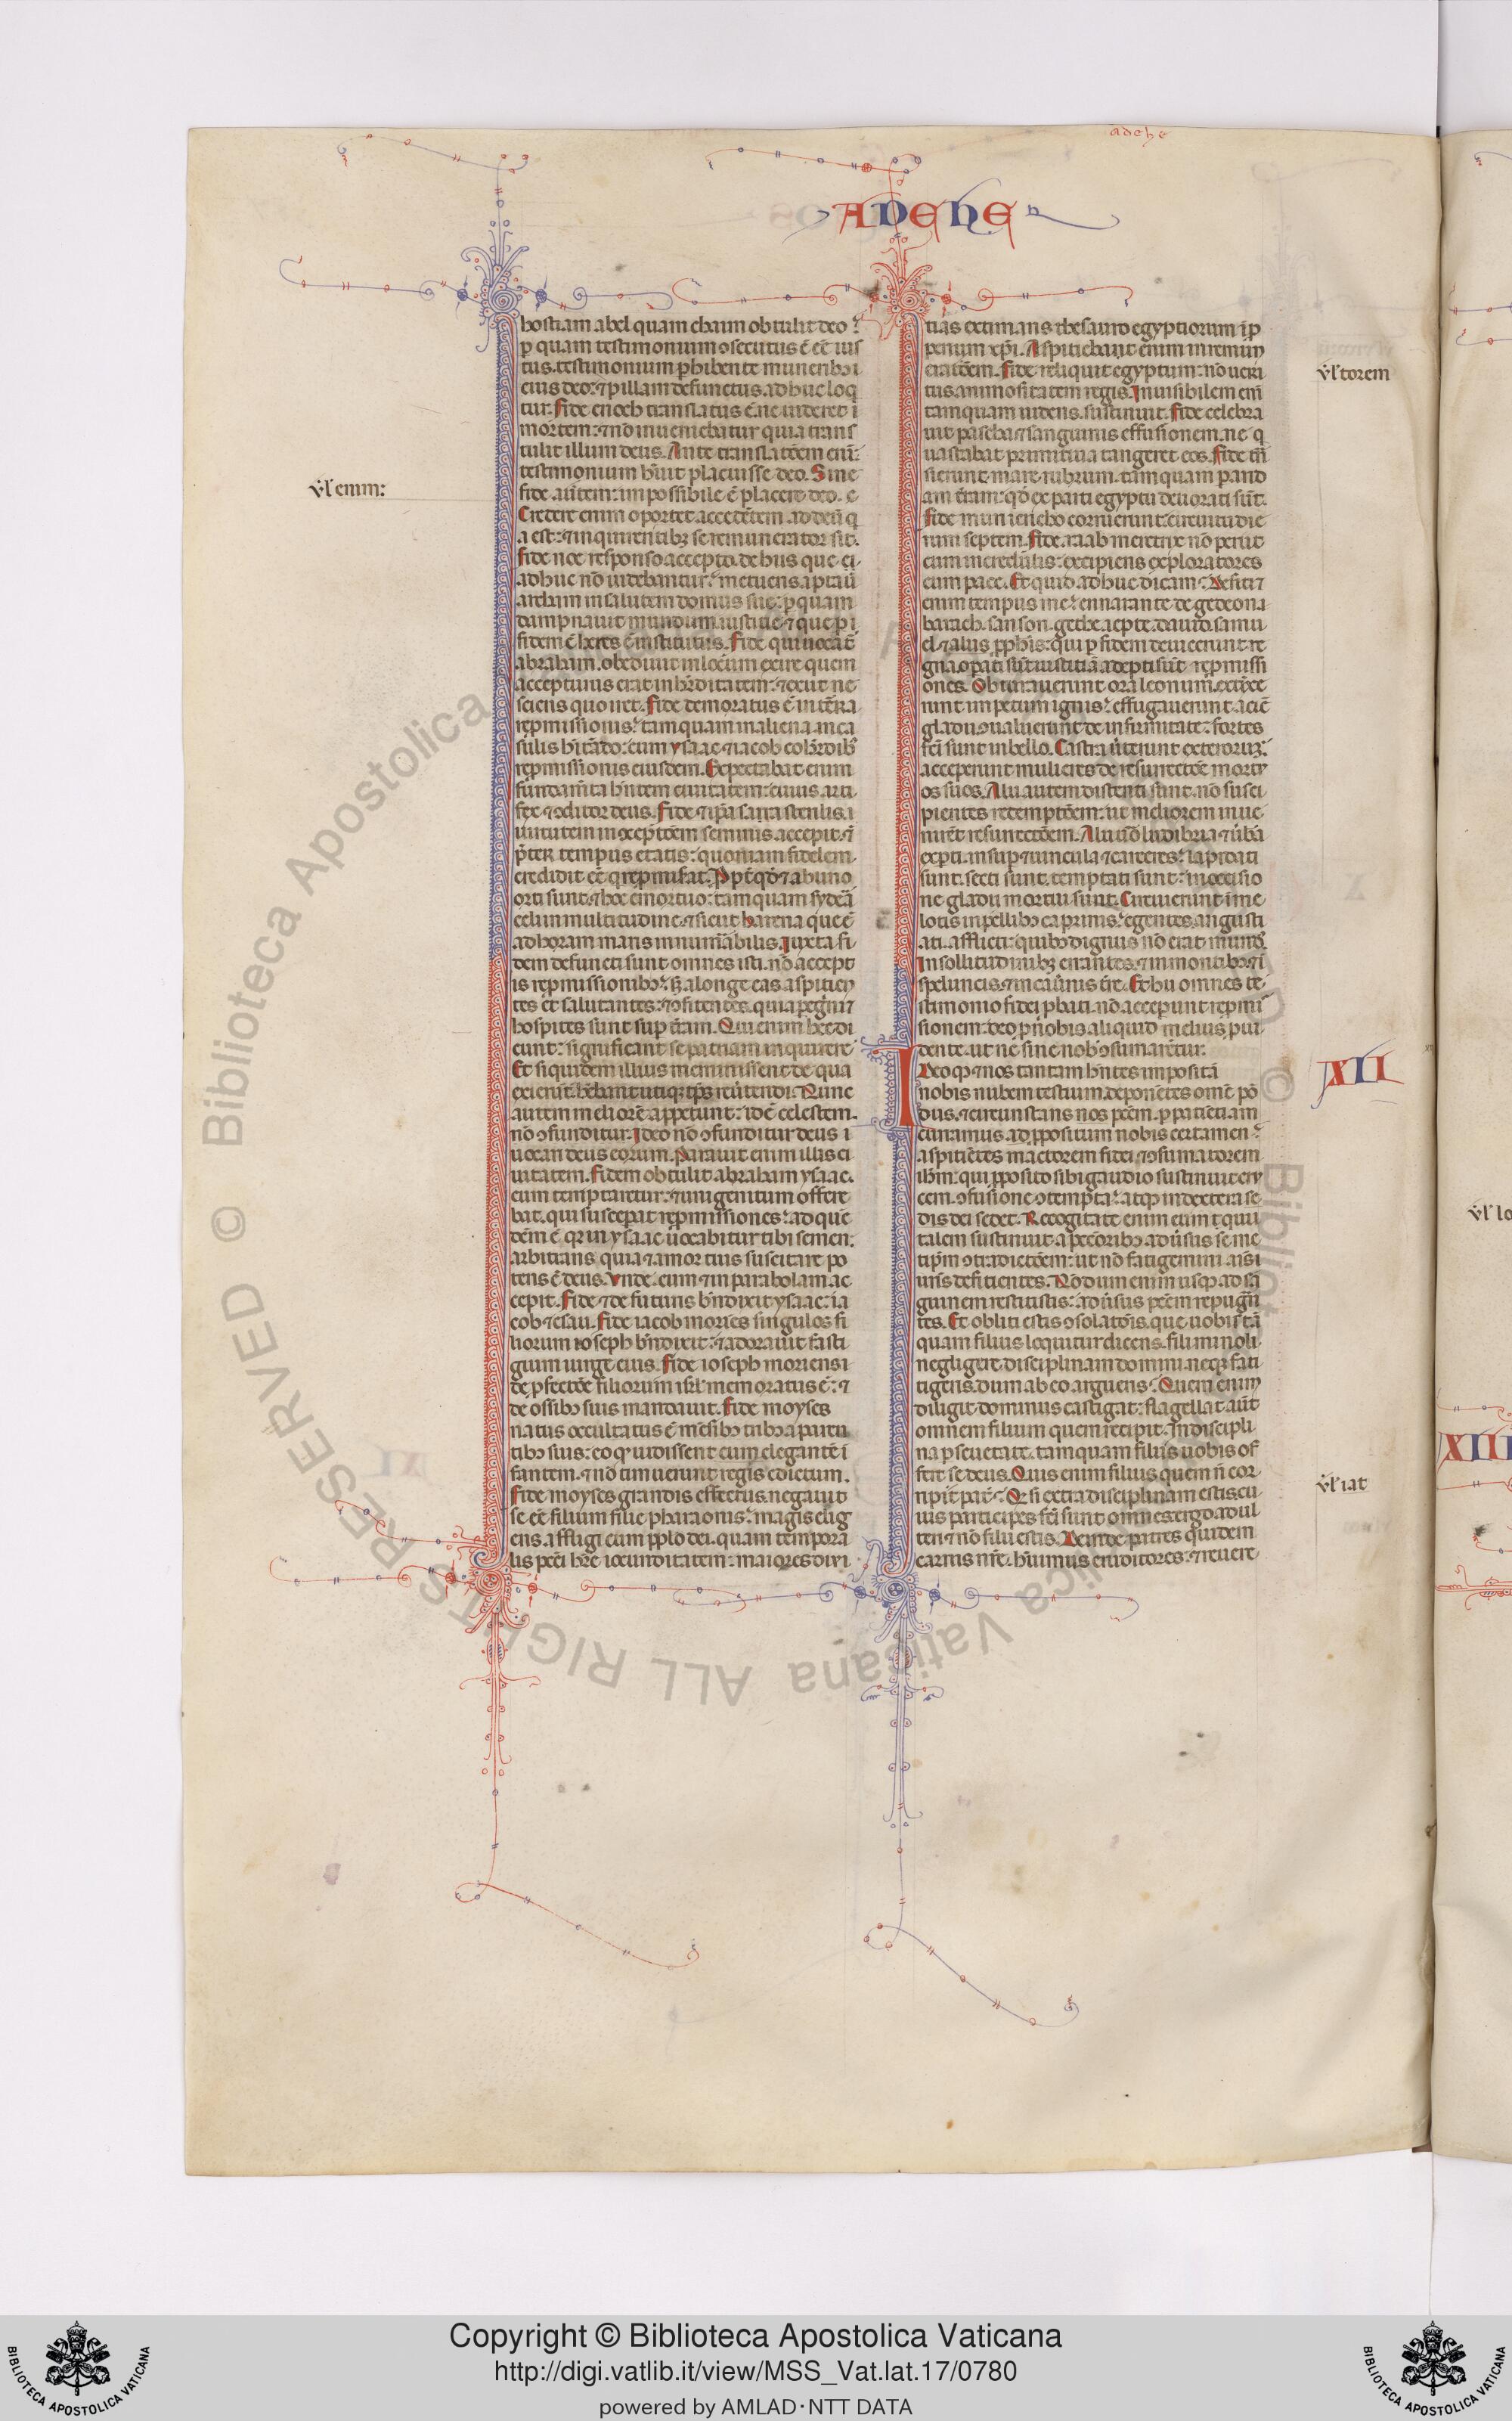 adehe
ADEHE
hostiam abel quam chaim obtulit deo:
p quam testimonium ɔsecutus ē eē ius
tus. testimonium phibente muneribꝫ
eius deo: ⁊ p illam defunctus. adhuc loq
tur. Fide enoch translatus ē. ne uideret
mortem: ⁊ nō inueniebatur quia trans
tulit illum deus. Ante translatōem eni:
testimonium hūit placuisse deo. Sine
fide autem: impossibile ē placere deo.
Credere enim oportet accedētem ad deū q
a est: ⁊ inquirentibꝫ se remunerator sit.
Fide noe responso accepto. de hiis que
adhuc nō uidebantur: metuens aptauit
archam in salutem domus sue: p quam
dampnauit mundum. iustitie ⁊ que p
fidem ē heres ē institutus. Fide qui uocat̄
abraham. obediuit in locum exire quem
accepturus erat in hr̄ditatem: ⁊ exiit ne
sciens quo iret. Fide demoratus ē in tēra
repmissionis: tamquam in aliena. in ca
sulis hītādo: cum ysaac ⁊ iacob cohr̄dibꝫ
repmissionis eiusdem. Expectabat enim
fundamta hn̄tem ciuitatem: cuius arti
fex ⁊ ɔditor deus. Fide ⁊ ipa sarra sterilis.
uirtutem in ɔceptōem seminis accepit.
pter tempus etatis: quoniam fidelem
credidit eē q repmisat. Ppt qd ⁊ ab uno
orti sunt. ⁊ hoc emortuo: tamquam sydera
celi in multitudine. ⁊ sicut harena que ē
ad horam maris innumābilis. Iuxta fi
dem defuncti sunt omnes isti. nō accept
is repmissionibꝫ: sꝫ a longe eas aspitien
tes et salutantes: ⁊ ɔfitentes. quia pegrini ⁊
hospites sunt sup tram. Qui enim hec di
cunt: significant se patriam inquirere
Et siquidem illius meminissent de qua
exierunt: hēbant utique tps reutendi. Nunc
autem meliorē appetunt: id ē celestem.
nō ɔfunditur. Ideo nō ɔfunditur deus
uocari deus eorum. Parauit enim illis ci
uitatem. Fidem obtulit abraham ysaac.
cum temptaretur: ⁊ unigenitum offere
bat. qui susceperat repmissiones: ad que
dcm ē qꝫ in ysaac uocabitur tibi semen:
arbitrans quia ⁊ a mortuis suscitare po
tens ē deus. Vnde. eum ⁊ in parabolam ac
cepit. Fide ⁊ de futuris bn̄dixit ysaac: ia
cob ⁊ esau. Fide iacob moriēs singulos fi
liorum ioseph bn̄dixit: ⁊ adorauit fasti
gium uirge eius. Fide ioseph moriens
de pfectōe filiorum isrl memoratus ē: ⁊
de ossibꝫ suis mandauit. Fide moyses
natus occultatus ē mēsibꝫ tribꝫ a paren
tibꝫ suis: eo qꝫ uidissent eum elegantē
fantem. ⁊ nō timuerunt regis edictum.
Fide moyses grandis effectus. negauit
se eē filium filie pharaonis: magis elig
ens affligi cum pplo dei. quam tempora
lis pcti hre iocunditatem: maiores diui
ul' enim:
tias extimans thesauro egyptiorum īp
perium xpi. Aspitiebant enim in remun
eratōem. Fide reliquit egyptum: nō ueri
tus animositatem regis. Inuisibilem eni
tamquam uidens. sustinuit. Fide celebra
uit pascha ⁊ sanguinis effusionem. ne q
uastabat primitiua tangeret eos. Fide tn
sierunt mare rubrum. tamquam p arid
am tram: qd expti egyptii deuorati sūt.
Fide muri iericho corruerunt: circuitu die
rum septem. Fide. raab meretrix nō periit
cum incredulis: excipiens exploratores
cum pace. Et quid adhuc dicam: Defitiet
enim tempus me: ennarante de gedeon.
barach. sanson. gepte. iepte. dauid. samu
el ⁊ aliis pphis: qui p fidem deuicerunt re
gna. opati sūt iustitiā. adepti sūt repmissi
ones. Obturauerunt ora leonum. extīxe
runt impetum ignis: effugauerunt aciē
gladii. ɔualuerunt de infirmitate: fortes
fcī sunt in bello. Castra uterunt exterorum:
acceperunt mulieres de resurrectōe mortu
os suos. Alii autem distenti sunt. nō susci
pientes redemptōem: ut meliorem inue
nirēt resurrectōem. Alii uo ludibria ⁊ ūba
experti. insup ⁊ uincula ⁊ carceres: lapidati
sunt. secti sunt. temptati sunt: in occisio
ne gladii mortui sunt. Circuierunt ī me
lotis in pellibꝫ caprinis: egentes. angusti
ati. afflicti: quibꝫ dignus nō erat mundꝰ.
In sollitudinibꝫ errantes. ⁊ in montibꝫ ⁊
speluncis. ⁊ in cauernis tre. Et hii omnes te
stimonio fidei pbati. nō acceperunt repmi
sionem: deo p nobis aliquid melius pui
dente. ut ne sine nobꝫ ɔsumarētur.
Ideoqꝫ ⁊ nos tantam hn̄tes impositā
nobis nubem testium. deponētes omē pō
dus. ⁊ circunstans nos pcm. p patiētiam
curramus ad ppositum nobis certamen:
aspitiētes in actorem fidei ⁊ ɔsumatorem
ihm: qui pposito sibi gaudio sustinuit cru
cem. ɔfusione ɔtempta: atqꝫ in dextera se
dis dei sedet. Recogitate enim eum qui
talem sustinuit a peccoribꝫ aduersus seme
tipm ɔtradictōem: ut nō fatigemini. aīsi
uris defitientes. Nōdum enim usqꝫ ad sā
guinem restitistis: aduersus pcm repugnā
tes. Et obliti estis ɔsolatōis. que uobis tā
quam filiis loquitur dicens. fili mi noli
negligere. disciplinam domini. neqꝫ fati
tigeris. dum ab eo arguens: Quem enim
diligit dominus castigat: flagellat aut
omnem filium quem recipit. In discipli
na pseuerate. tamquam filiis uobis of
fert se deus. Quis enim filius quem n cor
ripit pater: Qd si extra disciplinam estis. cu
ius participes fcī sunt omnes: ergo adul
teri ⁊ nō filii estis. Deinde patres quidem
carnis nre. hūimus eruditores: ⁊ reuere
ul' torem
XII
ul' iat
XIII
Copyright © Biblioteca Apostolica Vaticana
http://digi.vatlib.it/view/MSS_Vat.lat.17/0780
powered by AMLAD·NTT DATA
BIBLIOTECA APOSTOLICA VATICANA
BIBLIOTECA APOSTOLICA VATICANA
© Biblioteca Apostolica Vaticana ALL RIGHTS RESERVED